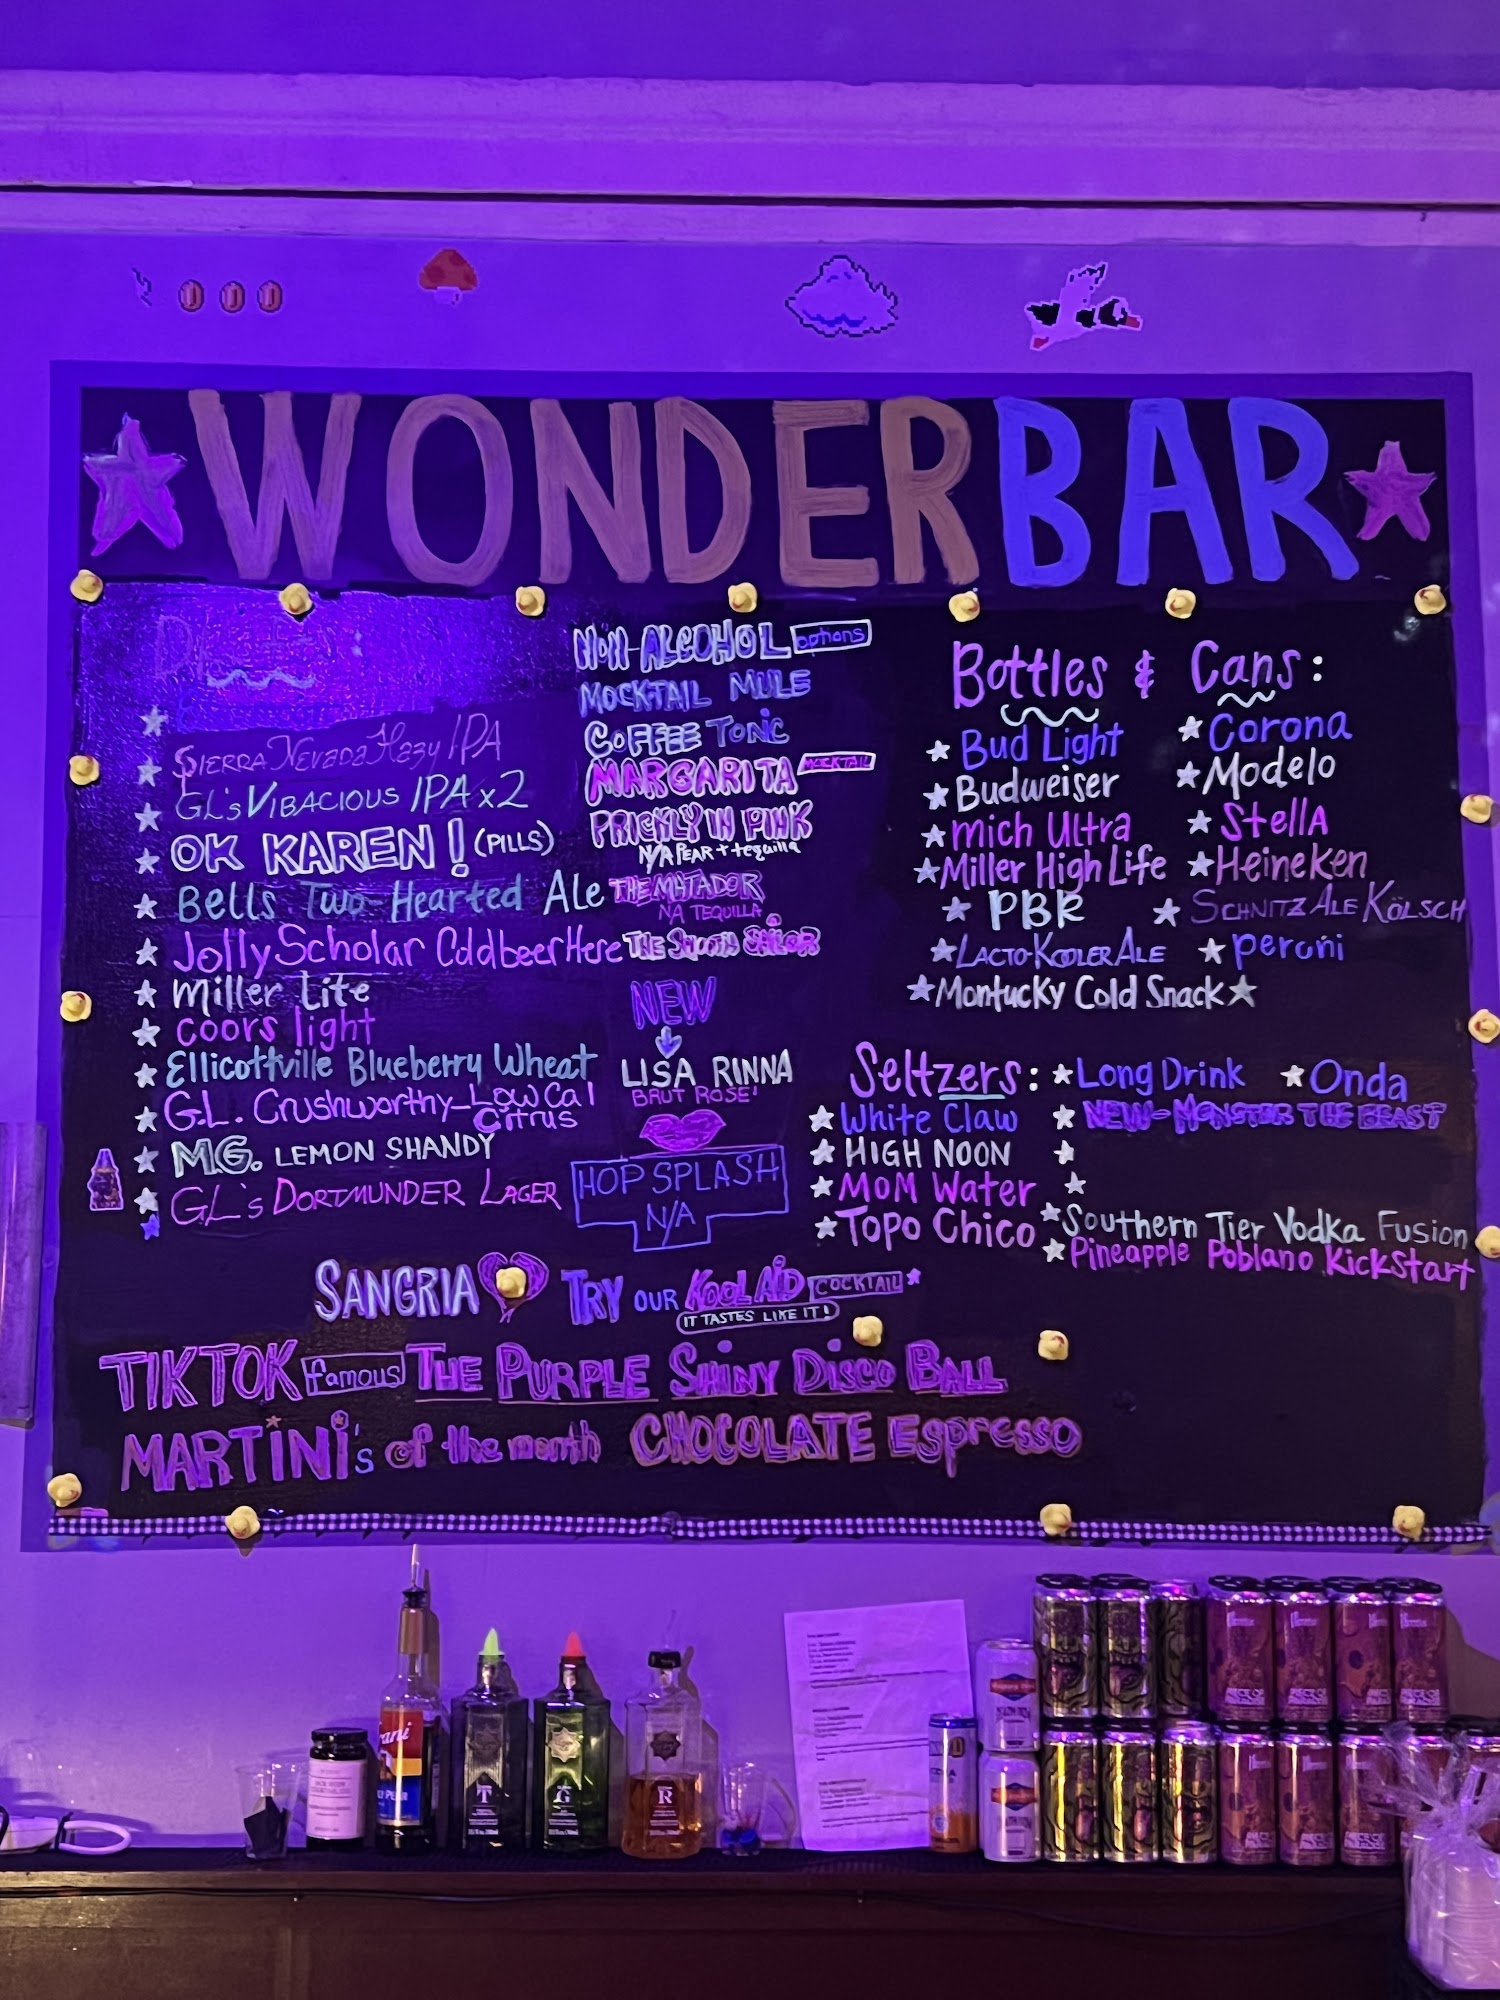 WONDERBAR
SIERRA Nevada Hazy IPA
GL's VIBACIOUS IPA x2
OK KAREN! (PILLS)
Bells Two-Hearted Ale
Jolly Scholar Coldbeer Here
Miller Lite
Coors light
Ellicottville Blueberry Wheat
G.L. Crushworthy-Low Cal
Citrus
MG. LEMON SHANDY
GL's DORTMUNDER LAGER
NON-ALCOHOL options
MOCKTAIL MULE
COFFEE TONIC
MARGARITA MOCKTAIL
PRICKLY IN PINK
N/A PEAR + tequilla
THE MATADOR
NA TEQUILLA
THE SMOOTH SAILOR
NEW
LISA RINNA
BRUT ROSE'
HOP SPLASH
N/A
Bottles & Cans:
Bud Light
Budweiser
Mich Ultra
Miller High Life
PBR
LACTO-KOOLER ALE
Montucky Cold Snack
Corona
Modelo
StellA
Heineken
SCHNITZ ALE KÖLSCH
peroni
Seltzers:
White Claw
HIGH NOON
MOM Water
TOPO CHICO
Long Drink
Onda
NEW-MONSTER THE BEAST
Southern Tier Vodka Fusion
Pineapple Poblano KickStart
SANGRIA
TRY OUR KOOL AID COCKTAIL*
IT TASTES LIKE IT!
TIKTOK famous THE PURPLE SHINY DISCO BALL
MARTINI's of the month CHOCOLATE Espresso
T
G
R